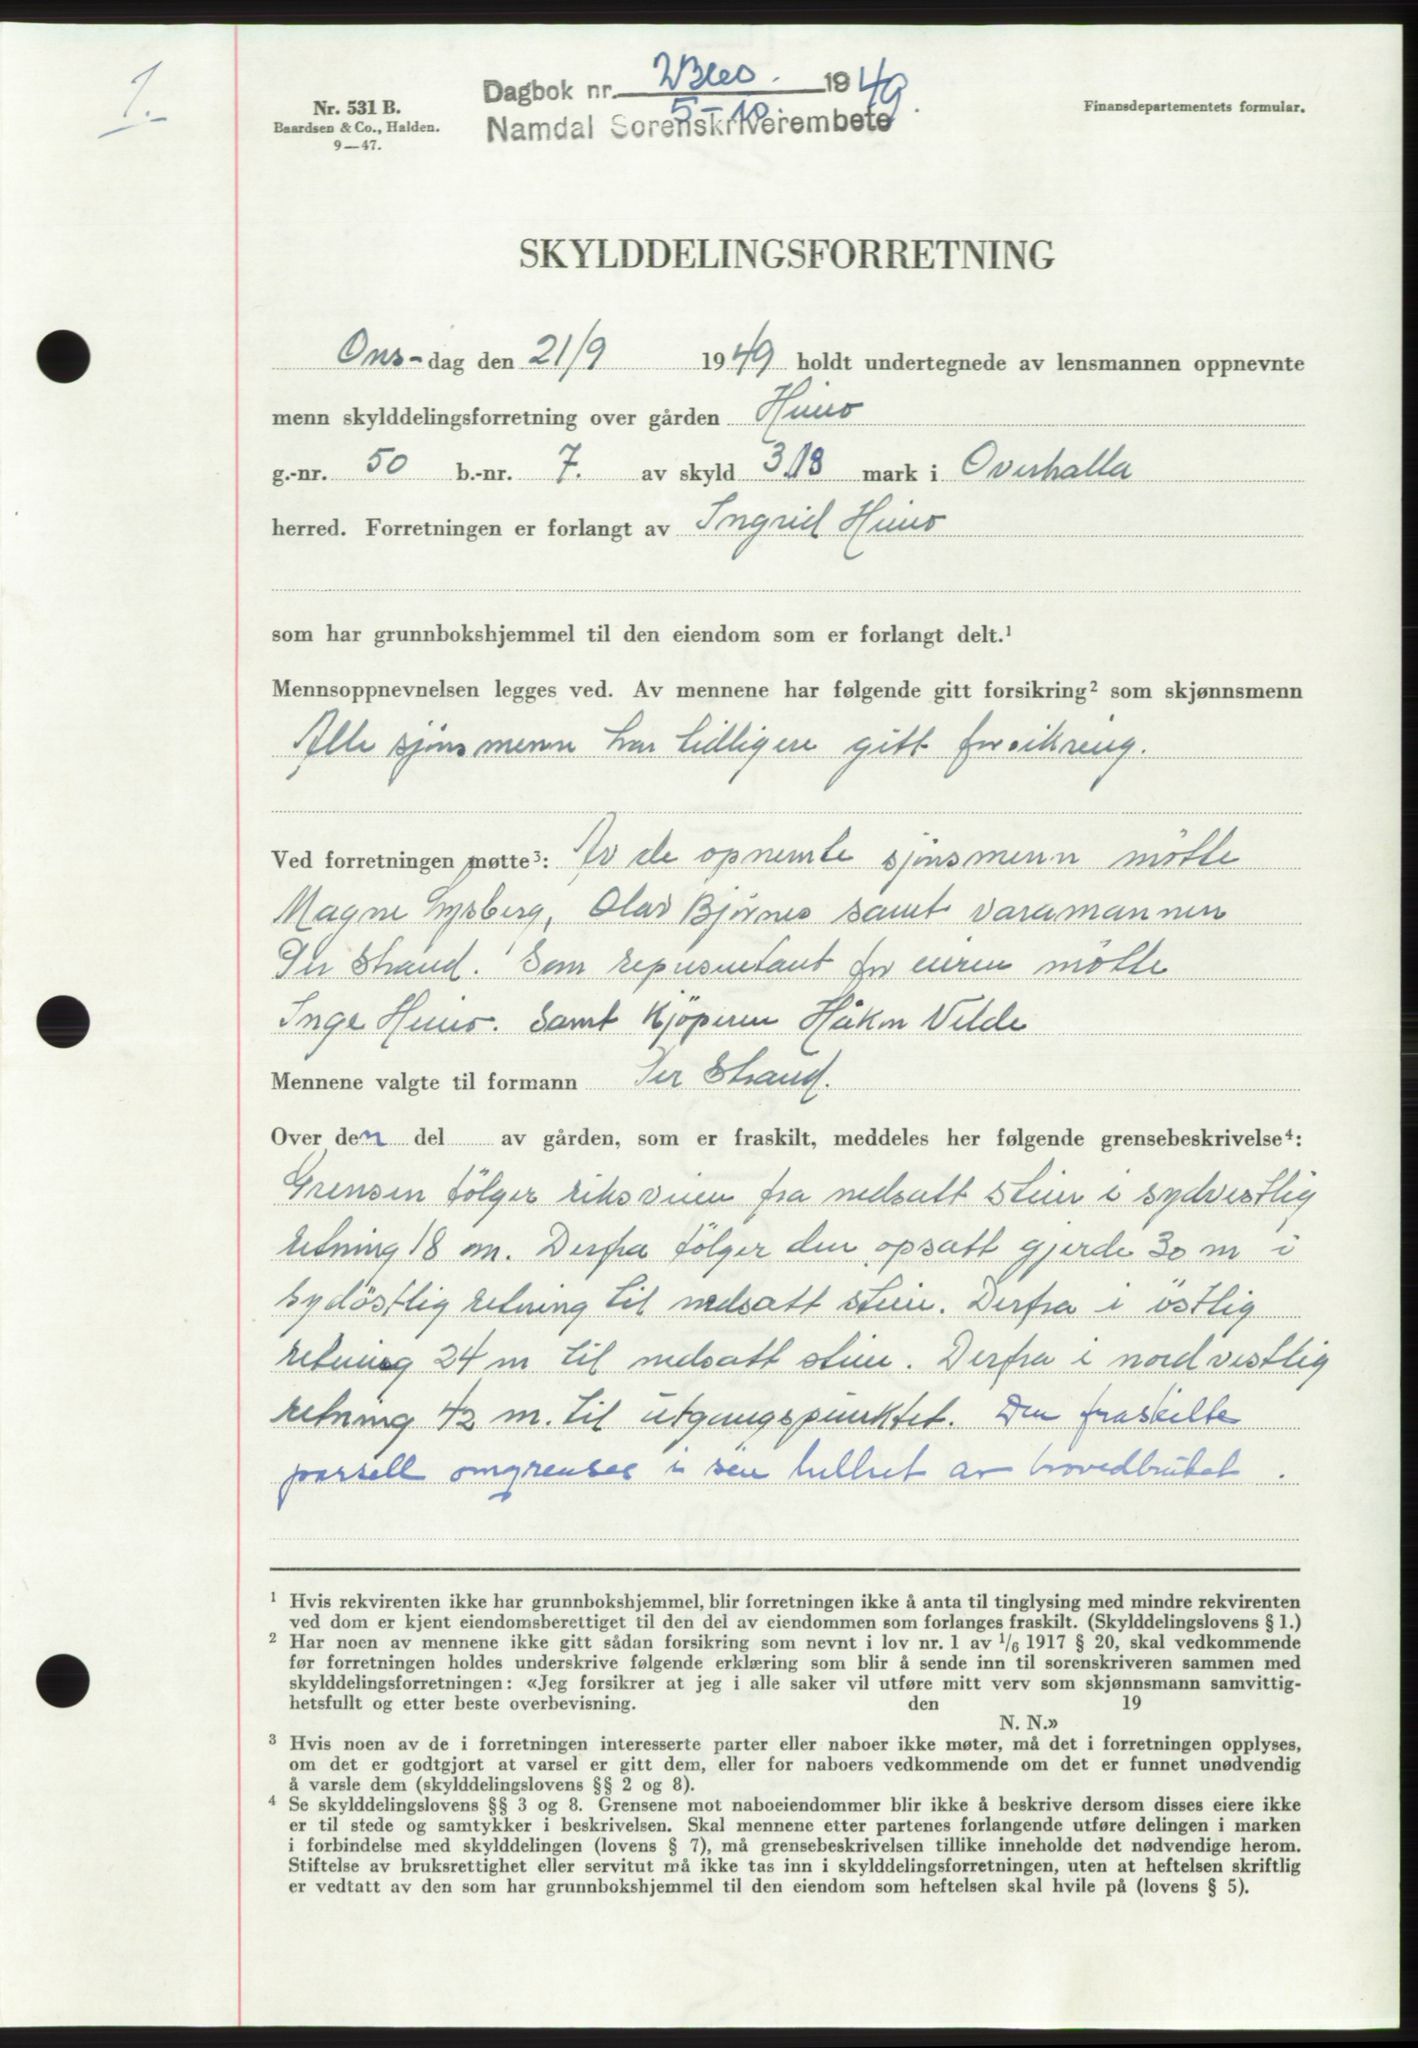 1.-
Nr. 531 B.
Baardsen & Co., Halden.
9—47.
Dagbok nr. 1949
5-10
Namdal Sorenskriverembete
Finansdepartementets formular.
SKYLDDELINGSFORRETNING
Ons-dag den 21/9 1949 holdt undertegnede av lensmannen oppnevnte
menn skylddelingsforretning over gården Himo
g.-nr. 50 b.-nr. 7. av skyld 3.18 mark i Overhalla
herred. Forretningen er forlangt av Ingrid Himo
som har grunnbokshjemmel til den eiendom som er forlangt delt.¹
Mennsoppnevnelsen legges ved. Av mennene har følgende gitt forsikring² som skjønnsmenn
Alle sjønsmenn har tidligere gitt forsikring.
Ved forretningen møtte³: Av de opnemte sjønsmenn mötte
Magne Lysberg, Olav Bjørnes samt varamannen
Per Strand. Som representant for eieren mötte
Inge Himo. Samt Kjöperen Håkon Velde
Mennene valgte til formann Per Strand.
Over den del av gården, som er fraskilt, meddeles her følgende grensebeskrivelse⁴:
Grensen fölger riksveien fra nedsatt stein i sydvestlig
retning 18 m. Derfra fölger den opsatt gjerde 30 m i
sydöstlig retning til nedsatt stein. Derfra i östlig
retning 24 m til nedsatt stein. Derfra i nordvestlig
retning 42 m. til utgangspunktet. Den fraskilte
parsell omgrenses i sin helhet av hovedbruket.
¹ Hvis rekvirenten ikke har grunnbokshjemmel, blir forretningen ikke å anta til tinglysing med mindre rekvirenten
ved dom er kjent eiendomsberettiget til den del av eiendommen som forlanges fraskilt. (Skylddelingslovens § 1.)
² Har noen av mennene ikke gitt sådan forsikring som nevnt i lov nr. 1 av 1/6 1917 § 20, skal vedkommende
før forretningen holdes underskrive følgende erklæring som blir å sende inn til sorenskriveren sammen med
skylddelingsforretningen: «Jeg forsikrer at jeg i alle saker vil utføre mitt verv som skjønnsmann samvittig-
hetsfullt og etter beste overbevisning. den 19
N. N.»
³ Hvis noen av de i forretningen interesserte parter eller naboer ikke møter, må det i forretningen opplyses,
om det er godtgjort at varsel er gitt dem, eller for naboers vedkommende om det er funnet unødvendig
å varsle dem (skylddelingslovens §§ 2 og 8).
⁴ Se skylddelingslovens §§ 3 og 8. Grensene mot naboeiendommer blir ikke å beskrive dersom disses eiere ikke
er til stede og samtykker i beskrivelsen. Skal mennene etter partenes forlangende utføre delingen i marken
i forbindelse med skylddelingen (lovens § 7), må grensebeskrivelsen tillike inneholde det nødvendige herom.
Stiftelse av bruksrettighet eller servitut må ikke tas inn i skylddelingsforretningen, uten at heftelsen skriftlig
er vedtatt av den som har grunnbokshjemmel til den eiendom som heftelsen skal hvile på (lovens § 5).